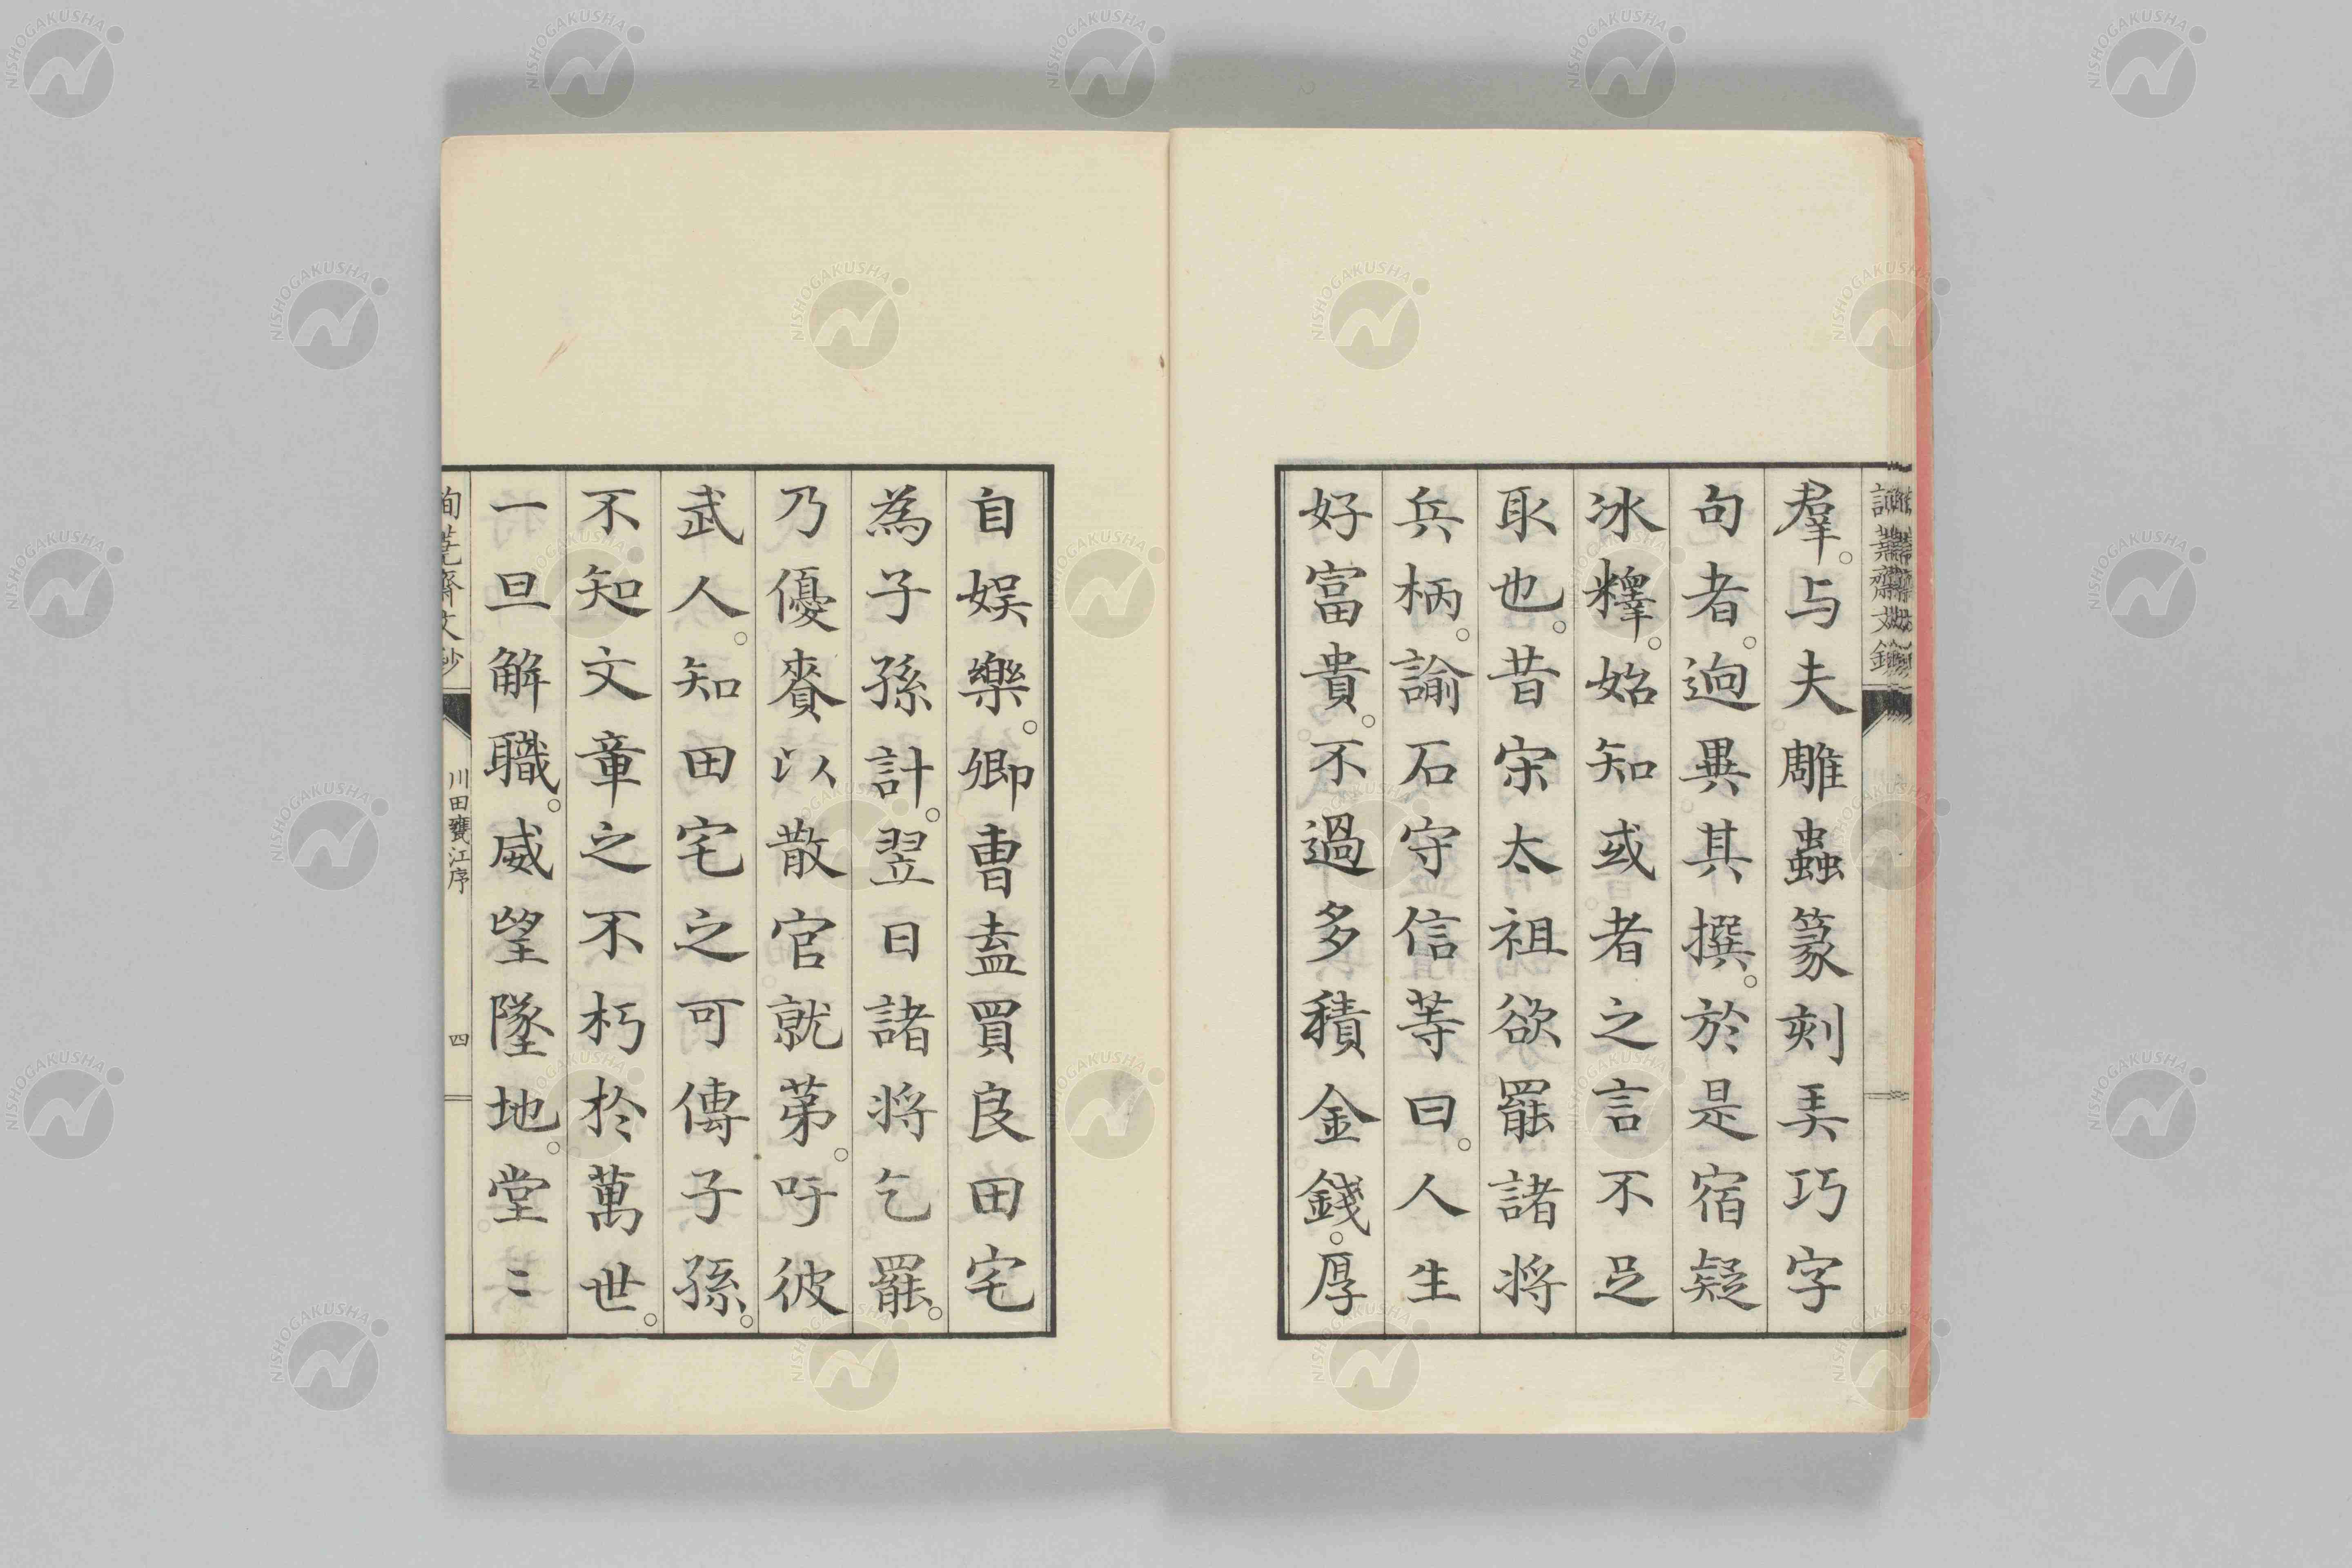 羣。与夫雕蟲篆刻弄巧字
句者。逈異其撰。於是宿疑
冰釋。始知或者之言不足
取也。昔宋太祖欲罷諸将
兵柄。諭石守信等曰。人生
好富貴。不過多積金錢。厚
自娯樂。卿曹盍買良田宅
為子孫計。翌日諸将乞罷。
乃優賚以散官就苐。吁彼
武人。知田宅之可傳子孫。
不知文章之不朽於萬世。
一旦解職。威望墜地。堂〻
川田甕江序
四
NISHOGAKUSHA